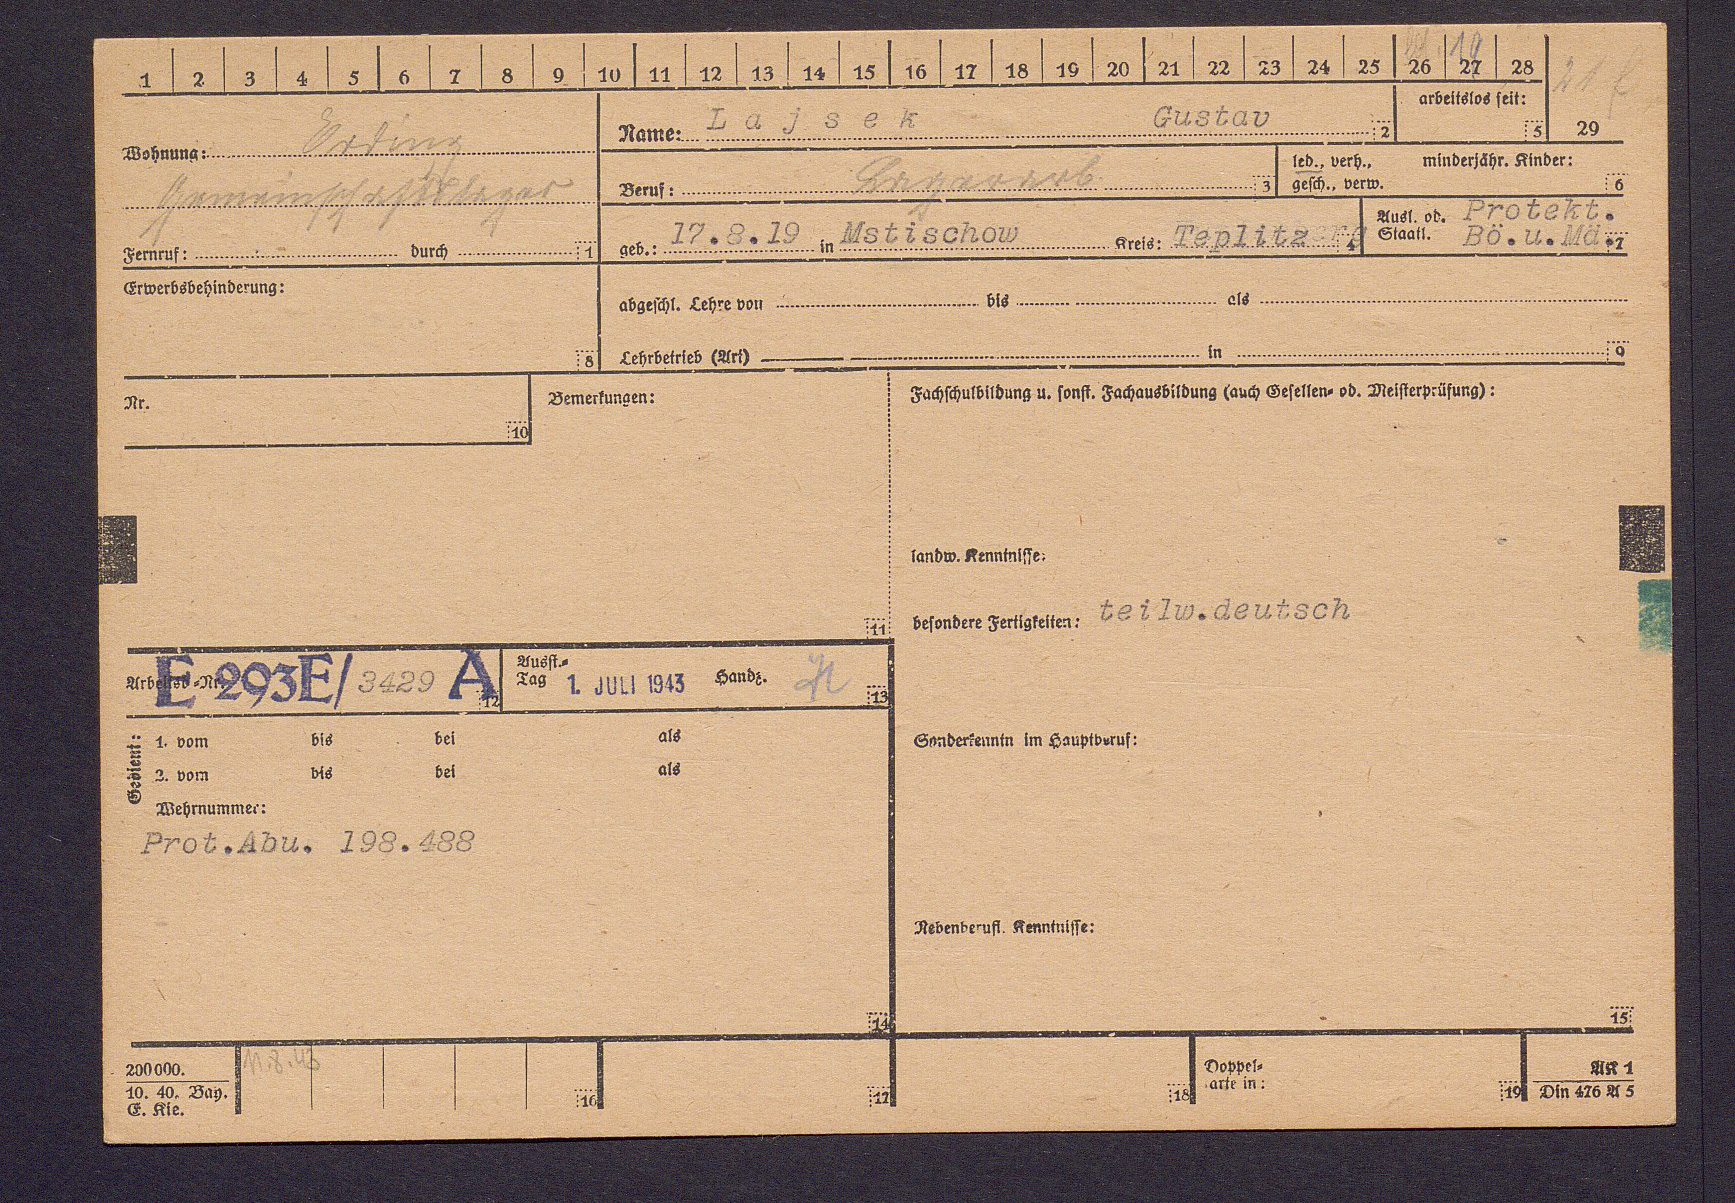 1 2 3 4 5 6 7 8 9 10 11 12 13 14 15 16 17 18 19 20 21 22 23 24 25 26 27 28
19
arbeitslos seit:
5
29
Wohnung: Erding
Gemeinschaftslager
Fernruf: durch 1
Name: Lajsek Gustav 2
Beruf: Lagerarb. 3
led., verh., gesch., verw.
minderjähr. Kinder:
6
geb.: 17.8.19 in Mstischow Kreis: Teplitz 4
Ausl. od. Staatl. Protekt.
Bö.u.Mä. 7
Erwerbsbehinderung:
8
abgeschl. Lehre von bis als
Lehrbetrieb (Art) in 9
Nr.
10
Bemerkungen:
11
Fachschulbildung u. sonst. Fachausbildung (auch Gesellen- od. Meisterprüfung):
landw. Kenntnisse:
besondere Fertigkeiten: teilw.deutsch
Arbeitsb.-Nr. E 293E/ 3429 A 12
Ausst.-
Tag 1. JULI 1943 Handz. 13
Gedient:
1. vom bis bei als
2. vom bis bei als
Wehrnummer:
Prot.Abu. 198.488
14
Sonderkenntn im Hauptberuf:
Nebenberufl. Kenntnisse:
15
200000.
10. 40. Bay.
E. Kie.
11.8.43
16
17
18
Doppel-
arte in:
19
AK 1
Din 476 A 5